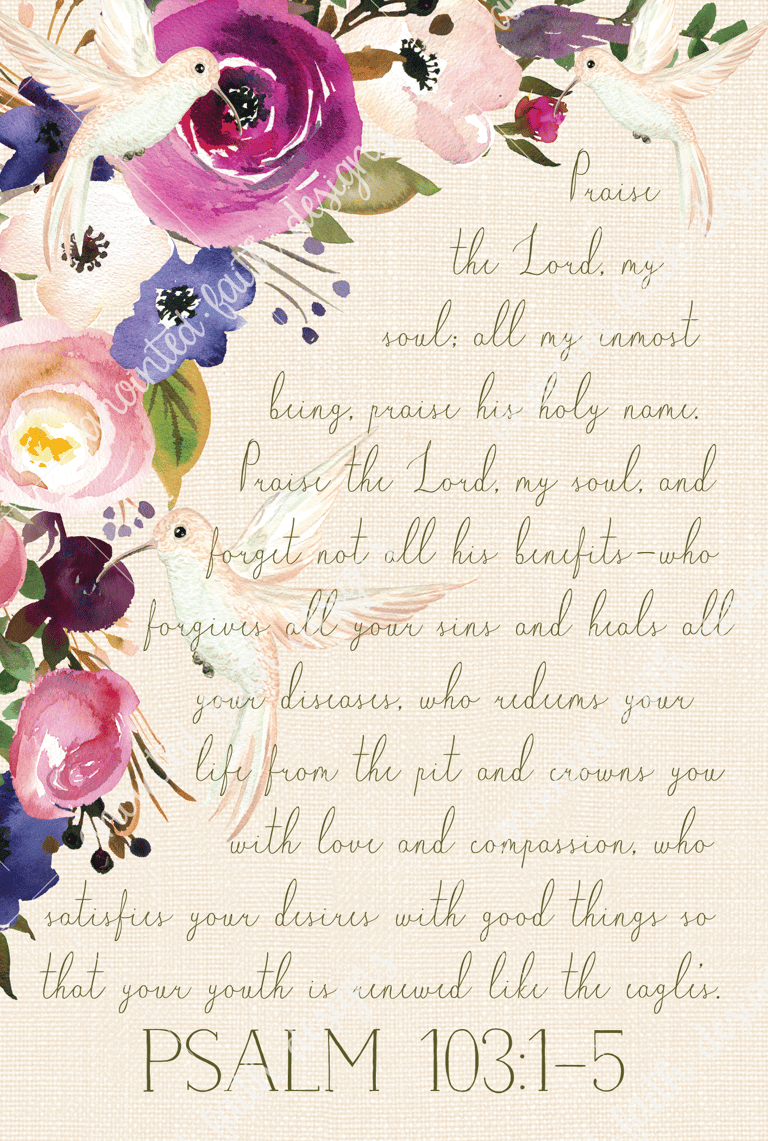 Praise
the Lord, my
soul; all my inmost
being, praise his holy name.
Praise the Lord, my soul, and
forget not all his benefits—who
forgives all your sins and heals all
your diseases, who redeems your
life from the pit and crowns you
with love and compassion, who
satisfies your desires with good things so
that your youth is renewed like the eagle's.
PSALM 103:1–5
anointed.faith.designs